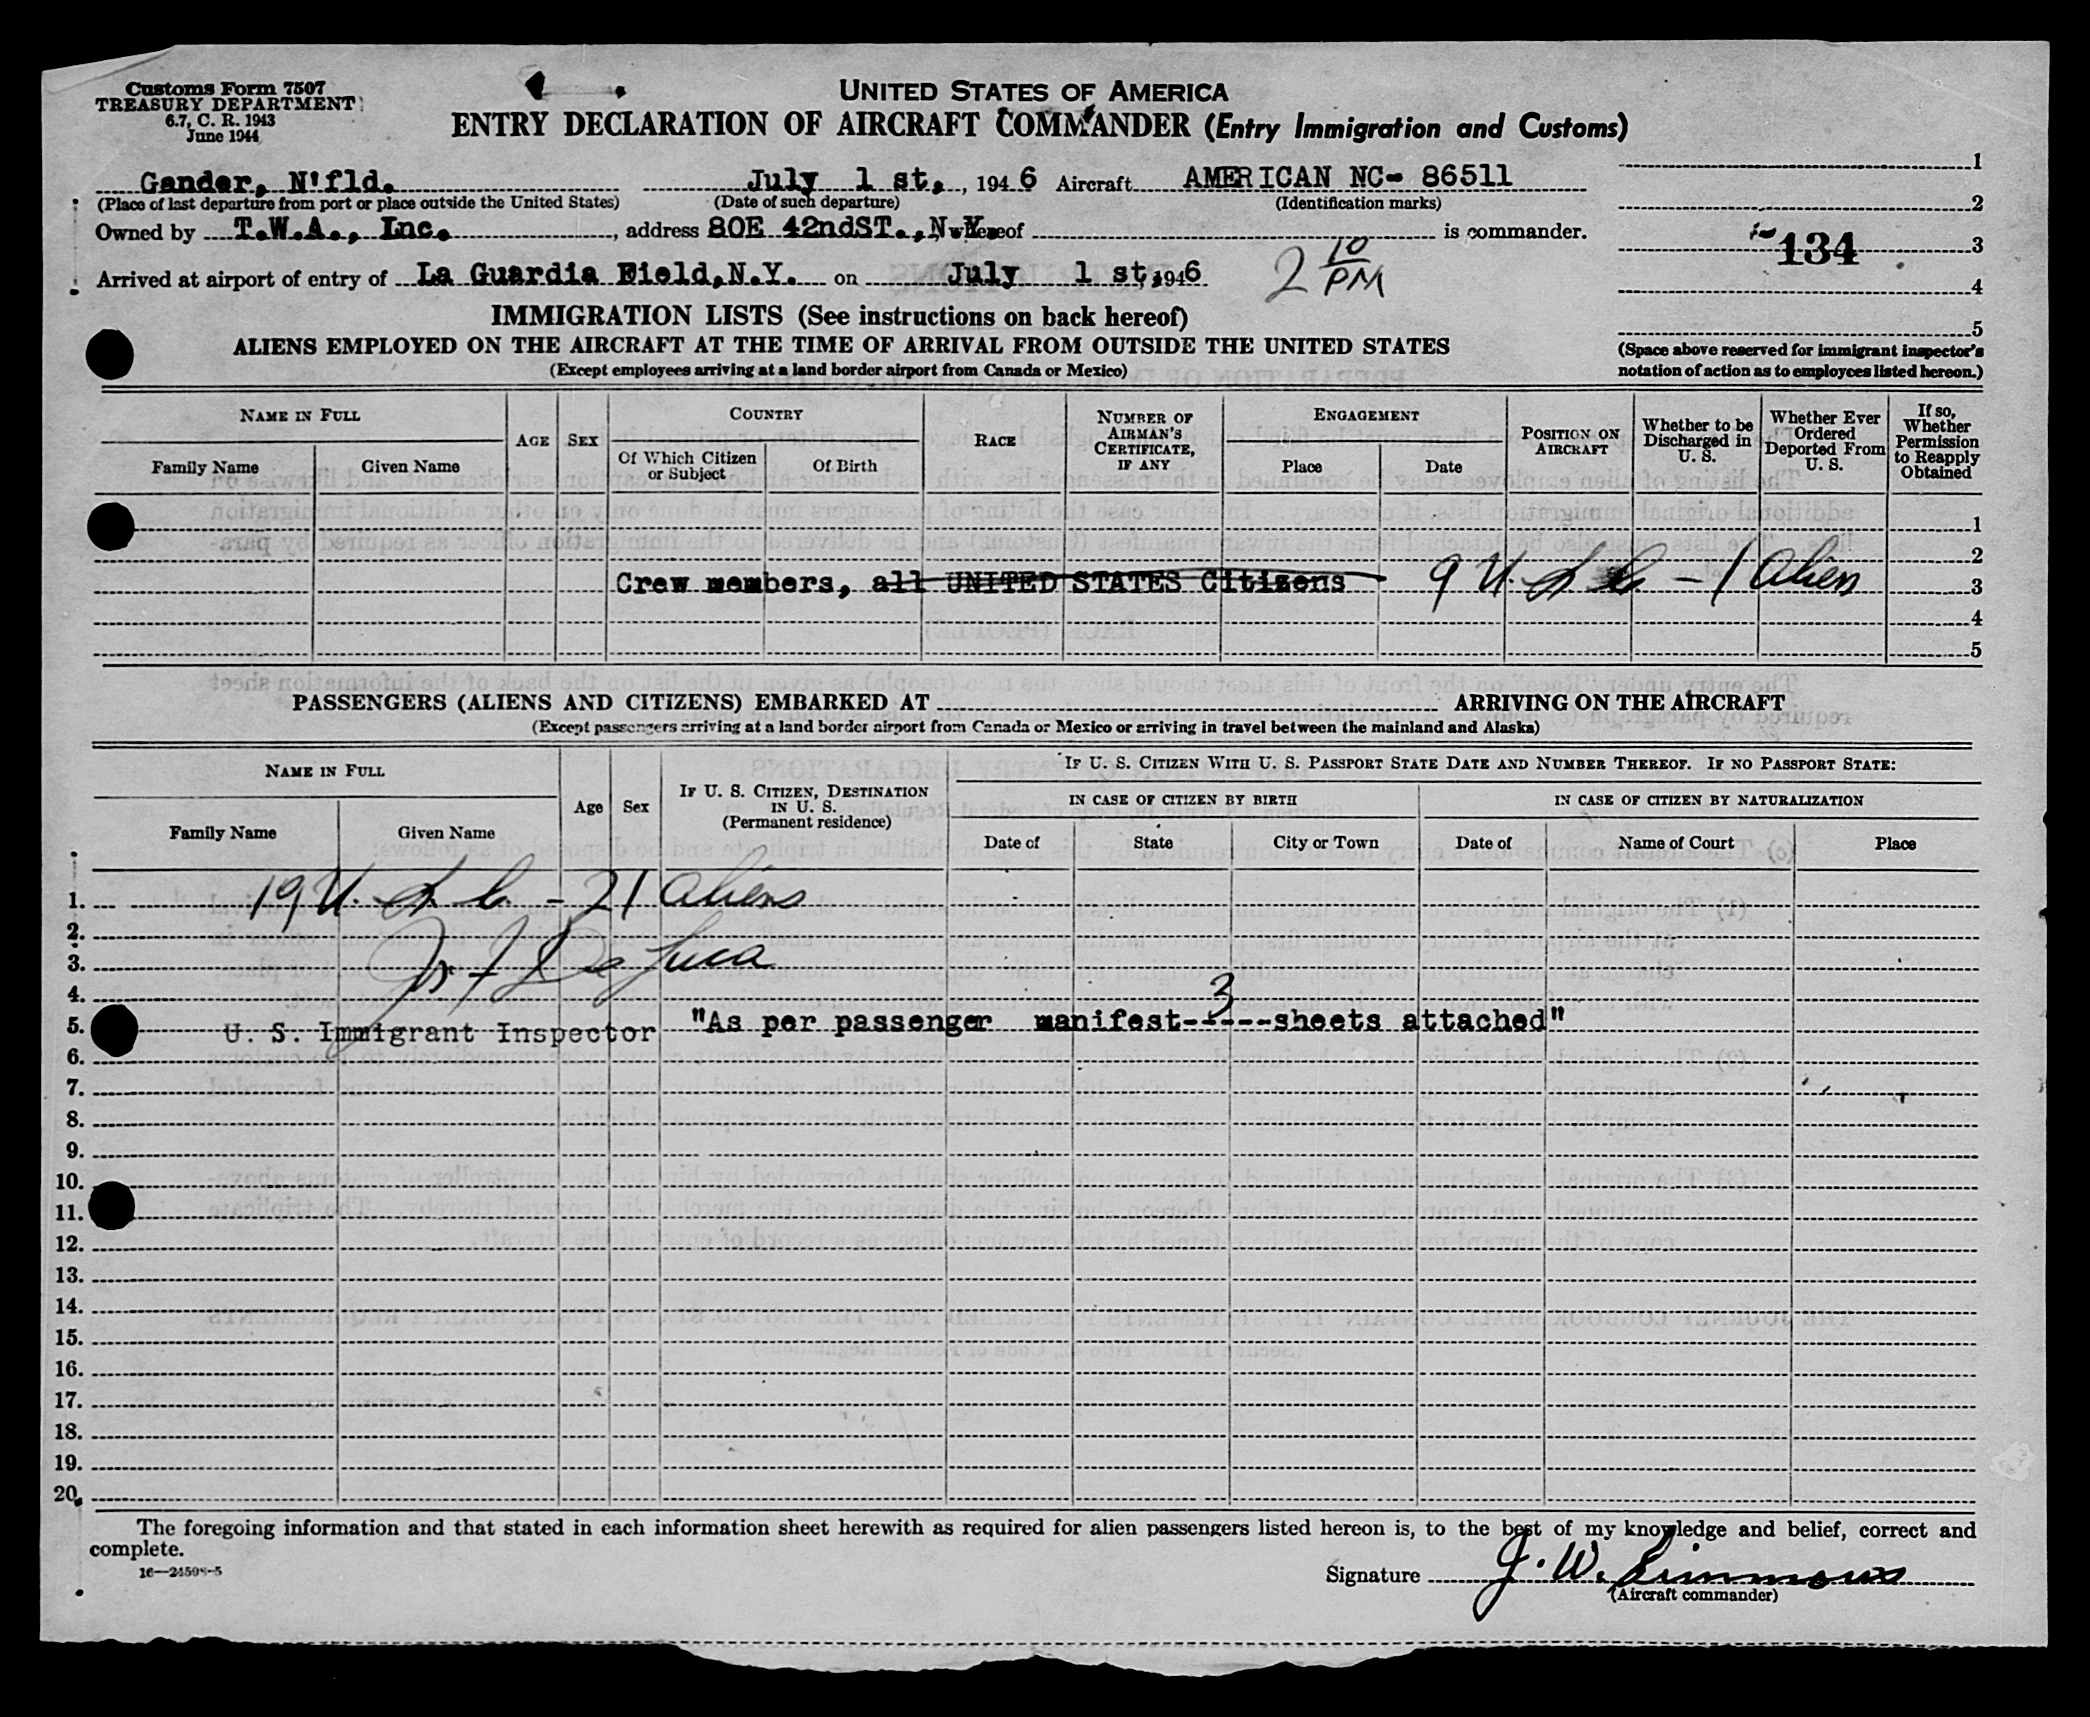 Customs Form 7507
TREASURY DEPARTMENT
6.7, C. R. 1943
June 1944
UNITED STATES OF AMERICA
ENTRY DECLARATION OF AIRCRAFT COMMANDER (Entry Immigration and Customs)
Gander, N'fld. July 1 st. , 1946 Aircraft AMERICAN NC- 86511
(Place of last departure from port or place outside the United States) (Date of such departure) (Identification marks)
Owned by T.W.A., Inc. , address 80E 42ndST., N.Y. whereof is commander.
Arrived at airport of entry of La Guardia Field,N.Y. on July 1 st, 1946 2 10 PM
1
2
3
134
4
5
(Space above reserved for immigrant inspector's
notation of action as to employees listed hereon.)
IMMIGRATION LISTS (See instructions on back hereof)
ALIENS EMPLOYED ON THE AIRCRAFT AT THE TIME OF ARRIVAL FROM OUTSIDE THE UNITED STATES
(Except employees arriving at a land border airport from Canada or Mexico)
NAME IN FULL
Family Name Given Name
AGE SEX
COUNTRY
Of Which Citizen or Subject
Of Birth
RACE
NUMBER OF AIRMAN'S CERTIFICATE, IF ANY
ENGAGEMENT
Place Date
POSITION ON AIRCRAFT
Whether to be Discharged in U. S.
Whether Ever Ordered Deported From U. S.
If so, Whether Permission to Reapply Obtained
1
2
Crew members, all UNITED STATES Citizens 9 U. S. C. - 1 Alien 3
4
5
PASSENGERS (ALIENS AND CITIZENS) EMBARKED AT ARRIVING ON THE AIRCRAFT
(Except passengers arriving at a land border airport from Canada or Mexico or arriving in travel between the mainland and Alaska)
NAME IN FULL
Family Name Given Name
Age Sex
IF U. S. CITIZEN, DESTINATION IN U. S.
(Permanent residence)
IF U. S. CITIZEN WITH U. S. PASSPORT STATE DATE AND NUMBER THEREOF. IF NO PASSPORT STATE:
IN CASE OF CITIZEN BY BIRTH IN CASE OF CITIZEN BY NATURALIZATION
Date of State City or Town Date of Name of Court Place
1. 19 U. S. C. - 21 Aliens
2.
3. De Luca
4.
5. U. S. Immigrant Inspector "As per passenger manifest--3---sheets attached"
6.
7.
8.
9.
10.
11.
12.
13.
14.
15.
16.
17.
18.
19.
20.
The foregoing information and that stated in each information sheet herewith as required for alien passengers listed hereon is, to the best of my knowledge and belief, correct and
complete.
16—24598-5
Signature J. W. Simmons
(Aircraft commander)